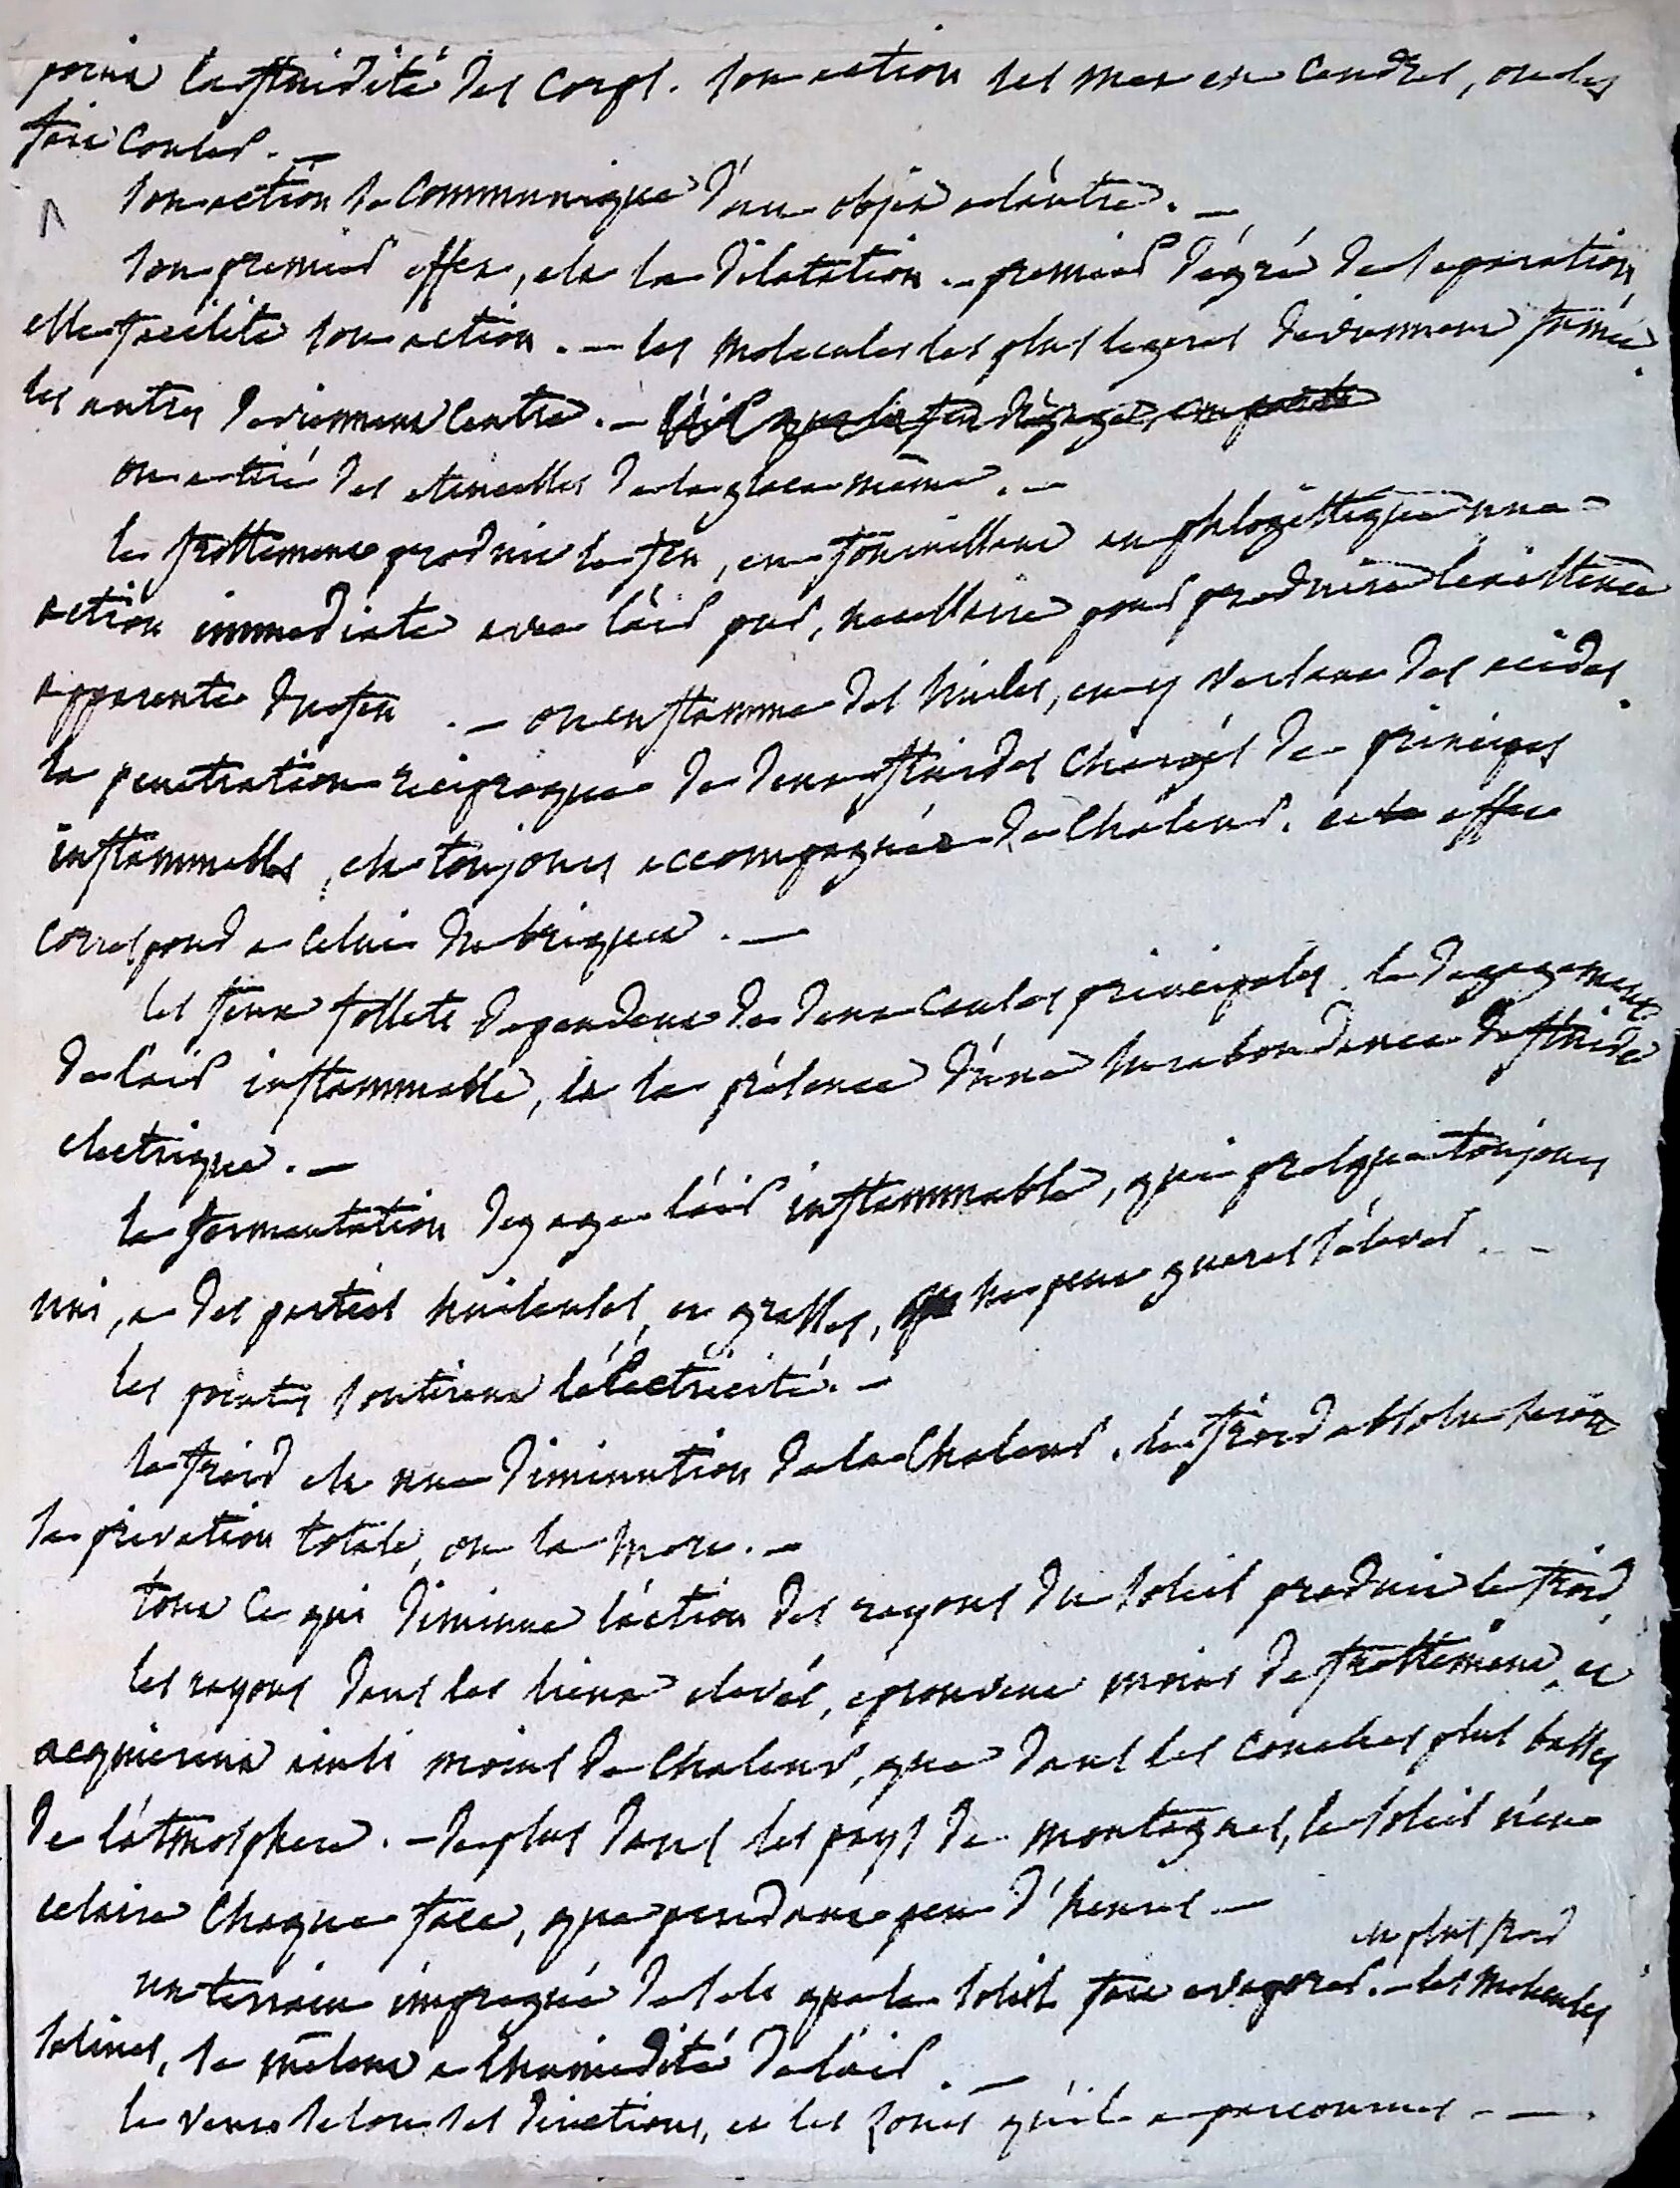 point la fluidité des corps. son action les met en cendres, ou les
fait couler. —
son action se communique d'un objet a l'autre. —
son premier effet, est la dilatation. — premier dégré de separation,
elle facilite son action. — les molecules les plus legeres deviennent fumée.
les autres deviennent cendre. —
on a tiré des etincelles de la glace même. —
le frottement produit le feu, en fournissant au phlogistique une
action immediate avec l'air pur, necessaire pour produire l'existence
apparente du feu. — on enflamme des huiles, en y versant des acides.
la penetration reciproque de deux fluides chargés de principes
inflammables, est toujours accompagnée de chaleur. cet effet
correspond a celui du briquet. —
les feux follets dependent de deux causes principales. le degagement
de l'air inflammable, et la présence d'une surabondance de fluide
electrique. —
la fermentation degage l'air inflammable, qui presque toujours
uni, a des parties huileuses, et grasses, ne peut gueres s'élever. —
les pointes soutirent l'électricité. —
le froid est une diminution de la chaleur. le froid absolu seroit
la privation totale, ou la mort. —
tout ce qui diminue l'action des rayons du soleil produit le froid.
les rayons dans les lieux elevés, eprouvent moins de frottement, et
acquierent ainsi moins de chaleur, que dans les couches plus basses
de l'atmosphere. — de plus dans les pays de montagnes, le soleil n'en
eclaire chaque face, que pendant peu d'heures —
est plus froid
un terrain impregné de sels que le soleil fait evaporer. — les molecules
salines, se mêlent a l'humidité de l'air. —
le vent selon ses directions, et les zones qu'il a parcourues — —.